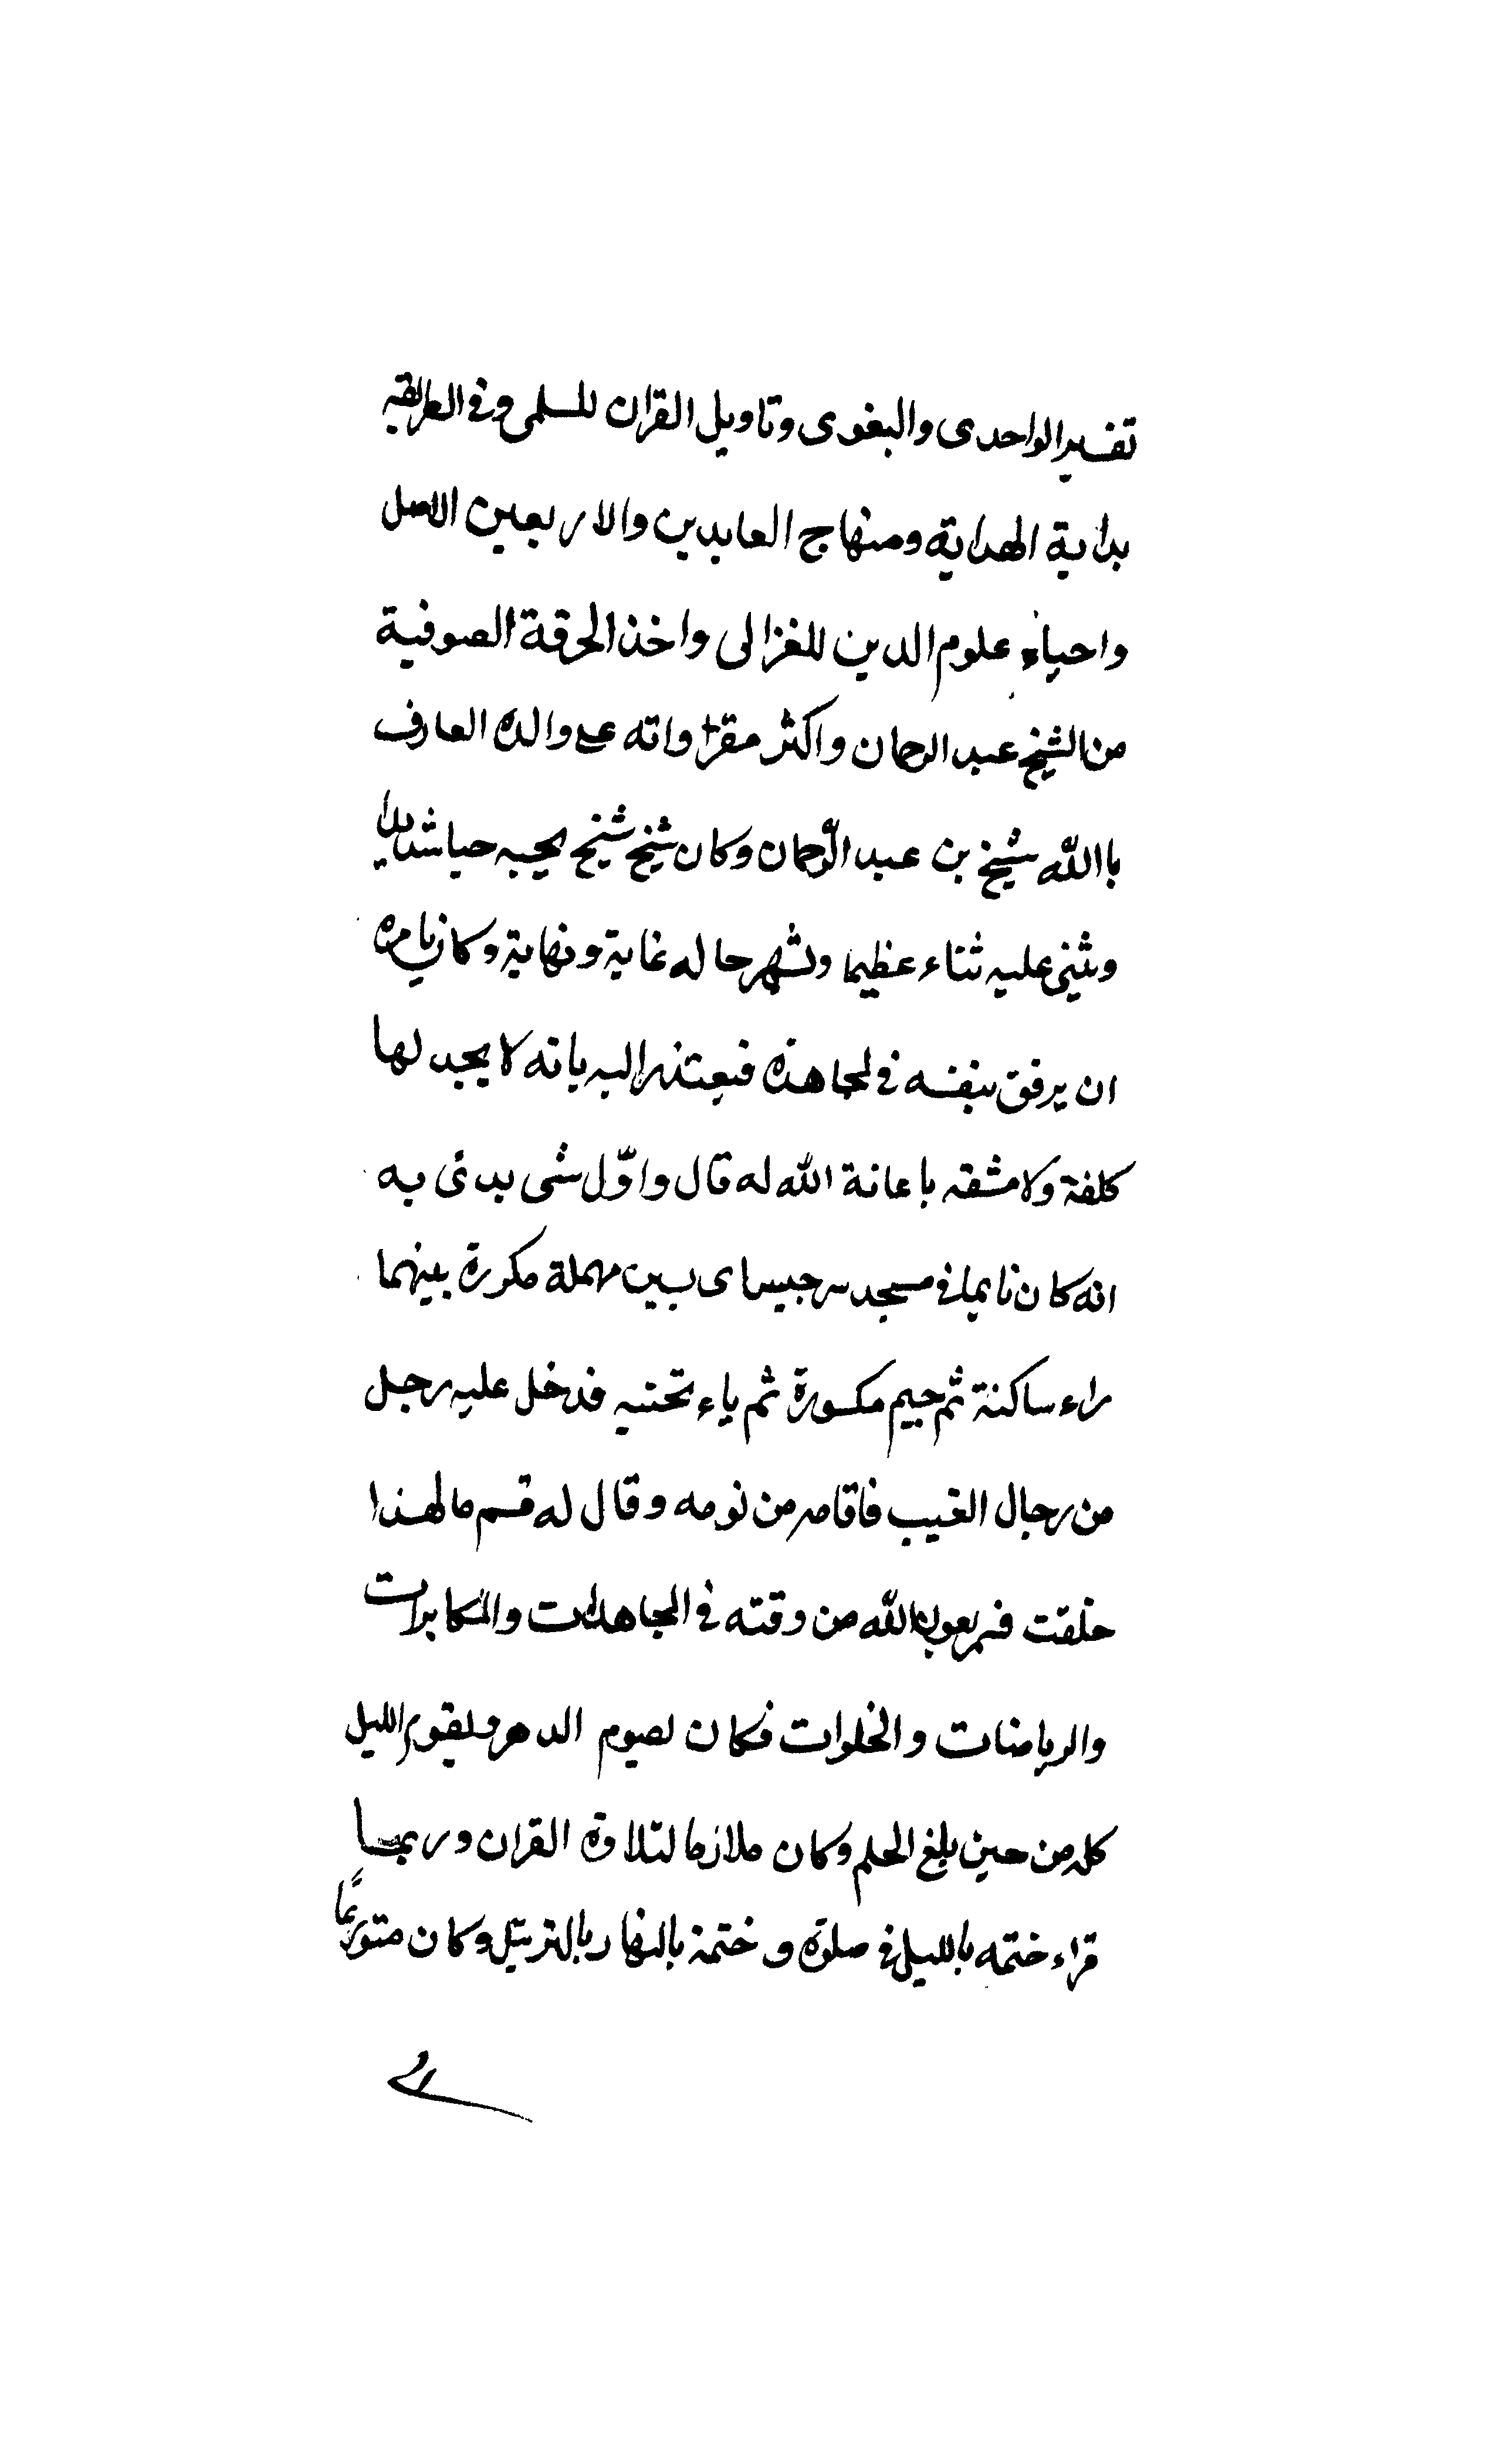 تفسير الواحدى والبغوى وتاويل القران للسلمى وفى الطريقه
بداية الهداية ومنهاج العابدين والاربعين الاصل
واحياء علوم الدين للغزالى واخذ الخرقة الصوفية
من الشيخ عبد الرحمان واكثر مقرواته على والده العارف
باالله شيخ بن عبد الرّحمان وكان شيخ شيخ يحبه حبا شديدا
ويثنى عليه ثناء عظيما ويشهر حاله غاية ونهاية وكان يامره
ان يرفق بنفسه فى المجاهده فيعتذر اليه بانه لا يجد لها
كلفة ولا مشقه باعانة الله له قال واوّل شى بدئ به
انه كان نايما فى مسجد سرجيساى بسين مهملة مكررة بينهما
راء ساكنة ثم جيم مكسورة ثم ياء تحتيه فدخل عليه رجل
من رجال الغيب فاقامه من نومه وقال له قم ما لهذا
خلقت فشمر بعون الله من وقته فى المجاهدات والمكابرات
والرياضات والخلوات فكان يصوم الدهر ويقوم الليل
كله من حين بلغ الحلم وكان ملازما لتلاوة القران وربما
قراء ختمه بالليل فى صلوة و ختمة بالنهار بالترتيل وكان متورعًا